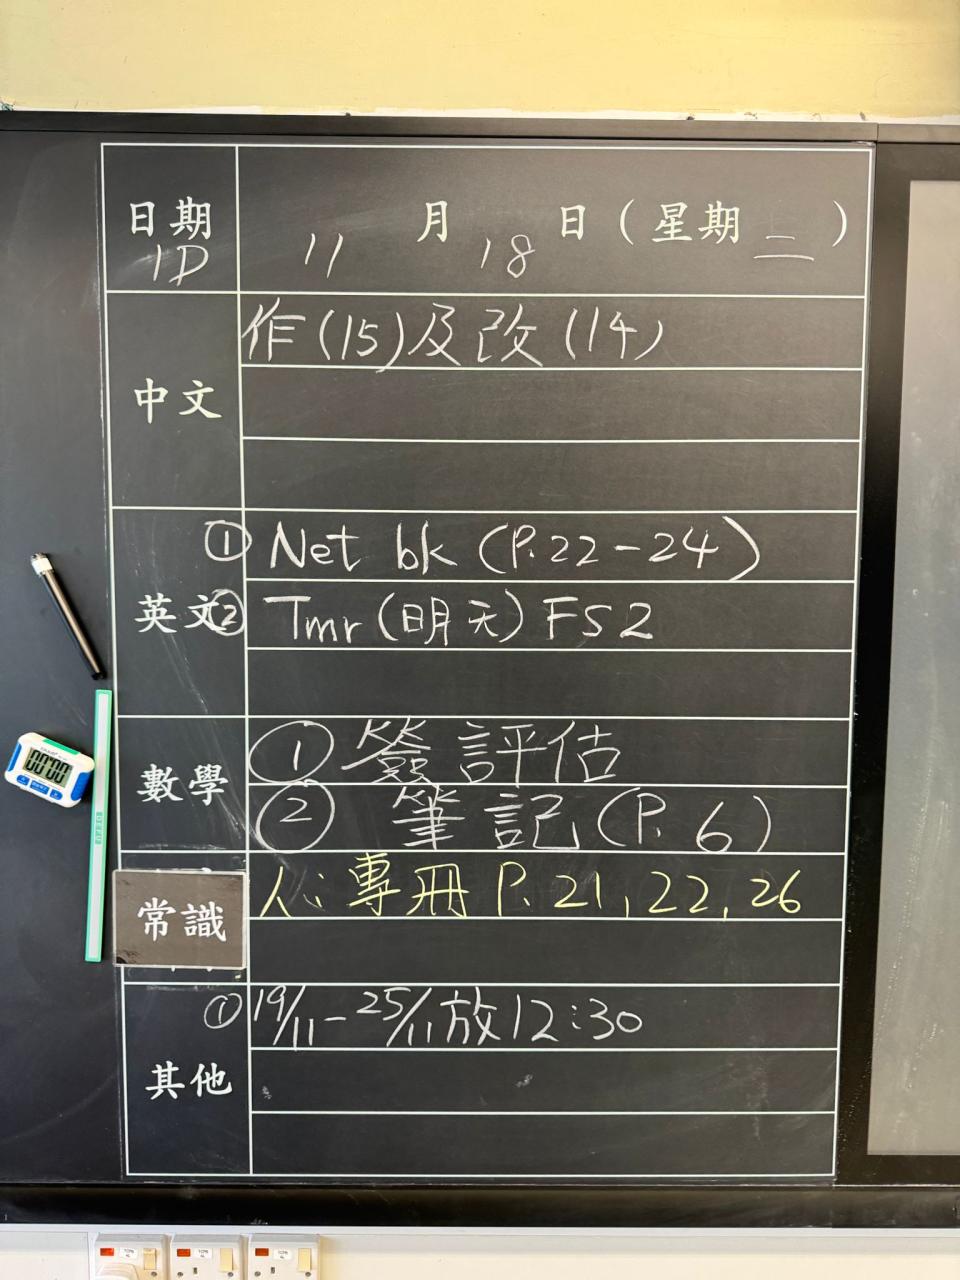 日期 11 月 18 日 ( 星期 二 )
1D
中文 作(15)及改(14)
英文 ① Net bk (P.22-24)
② Tmr (明天) FS2
數學 ① 簽評估
② 筆記 (P. 6)
常識 人:專冊 P. 21, 22, 26
其他 ① 19/11-25/11放12:30
00'00